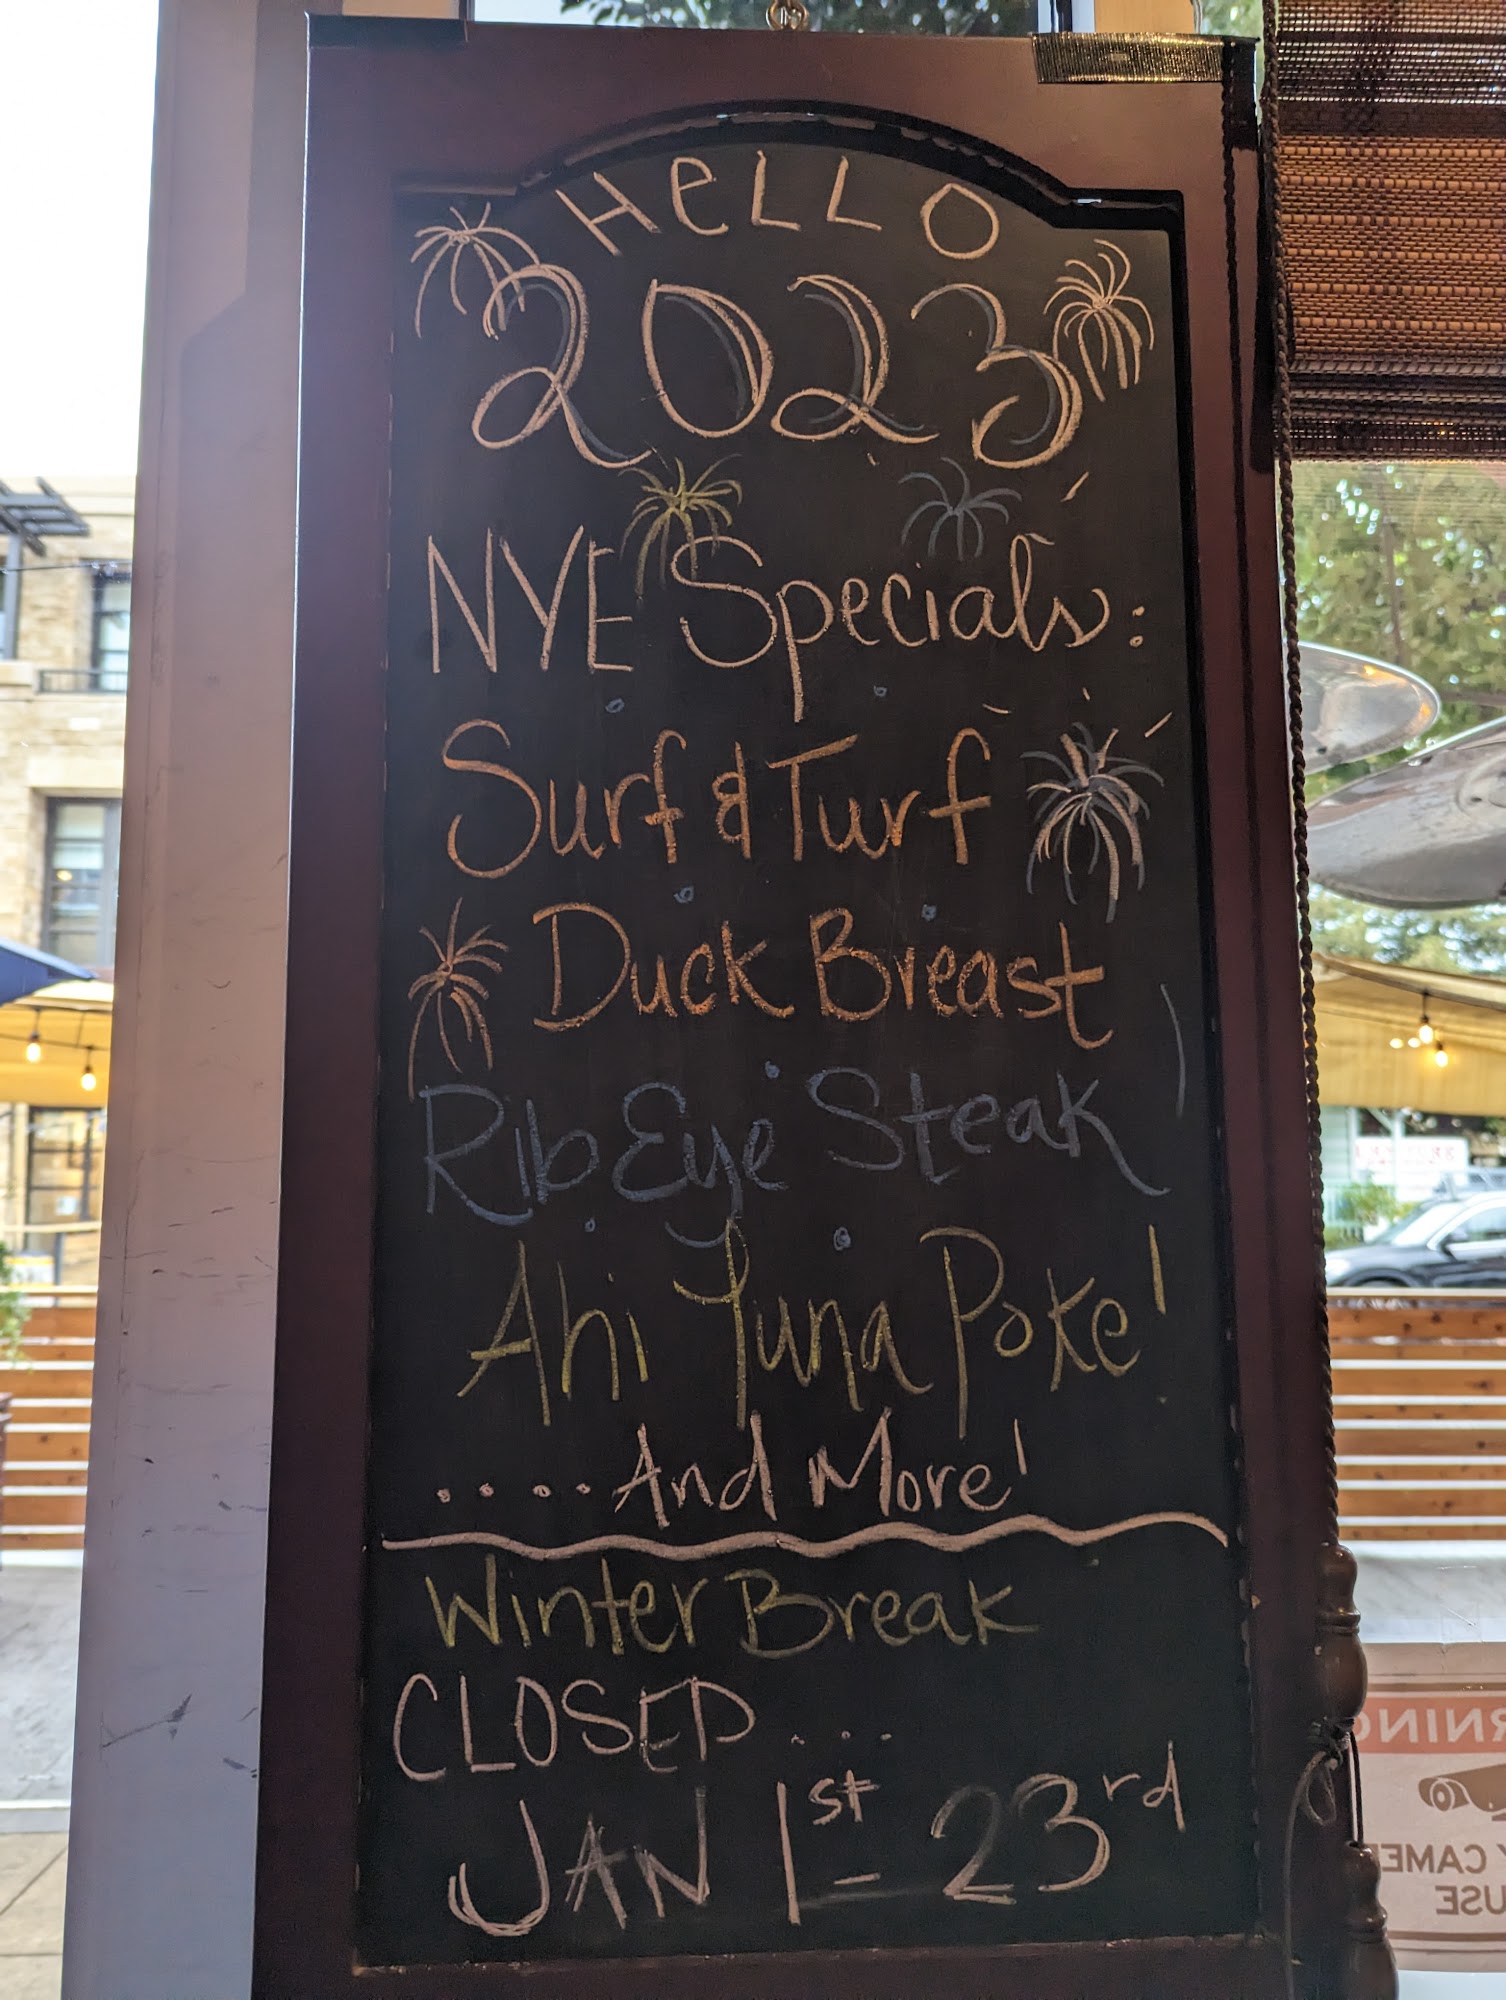 HeLLO
2023
NYE Specials:
Surf & Turf
Duck Breast
Rib Eye Steak
Ahi Tuna Poke!
.....And More!
Winter Break
CLOSED....
JAN 1st - 23rd
RNING
Y CAME
USE